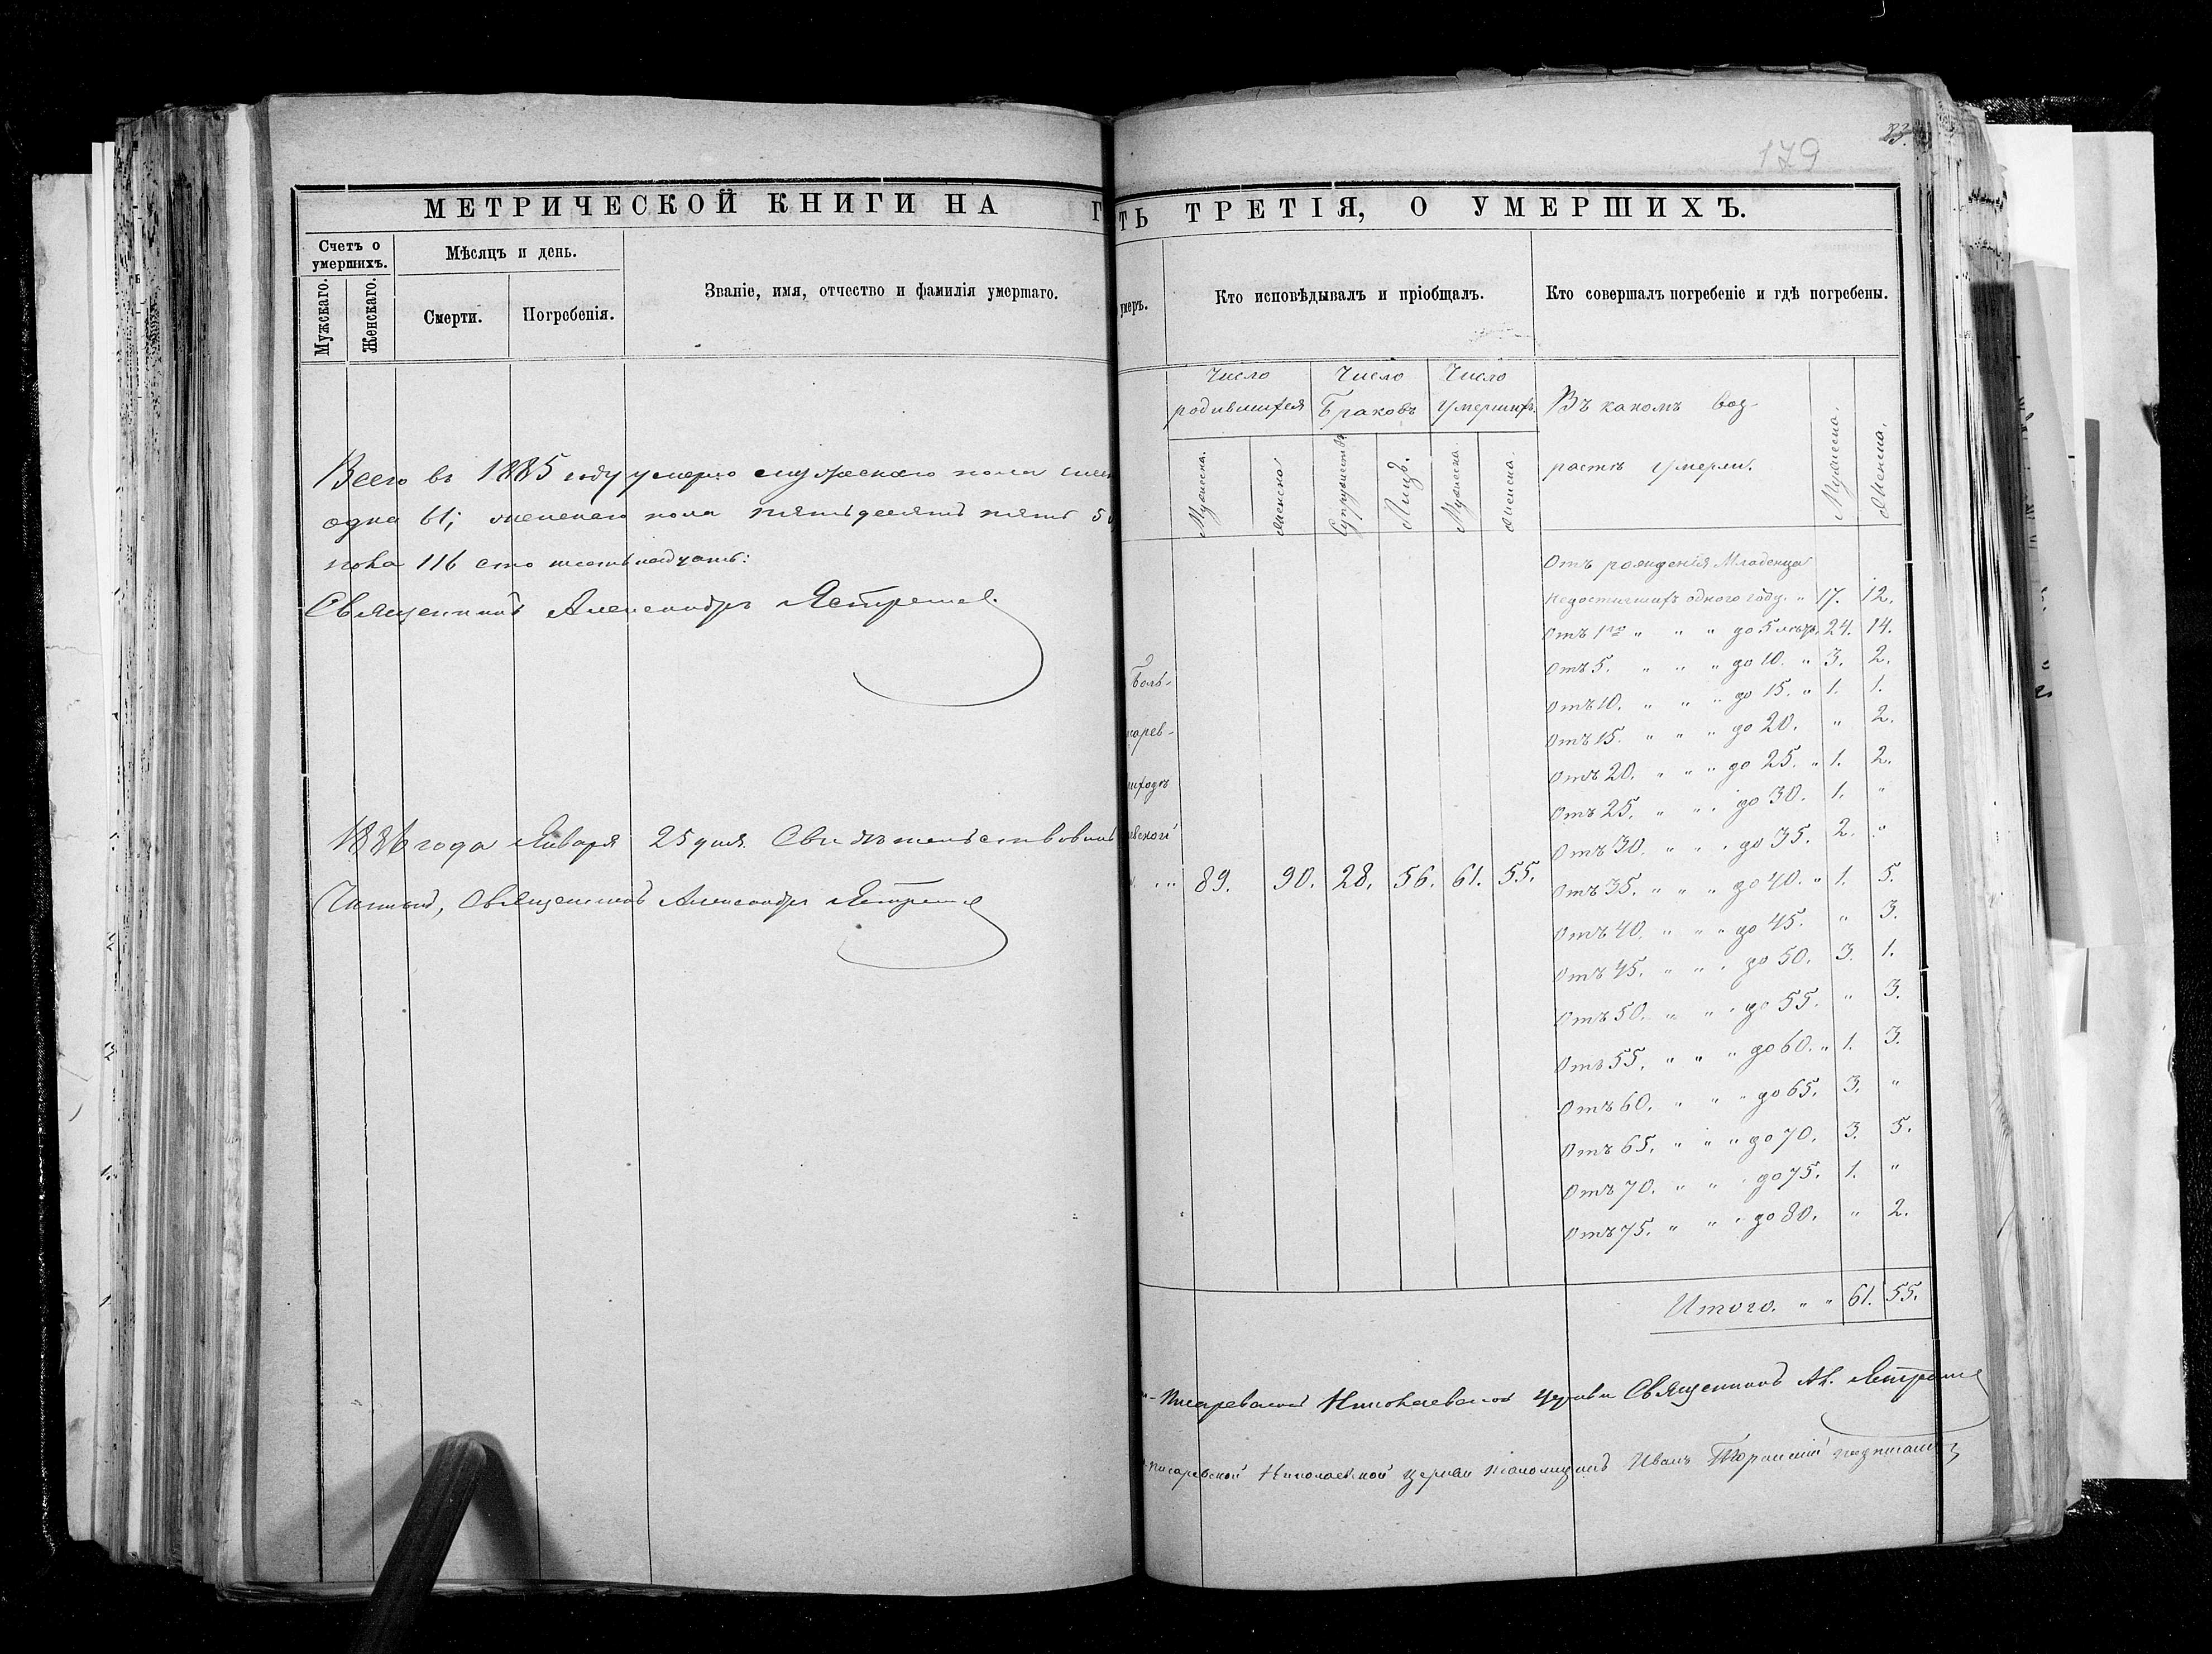 МЕТРИЧЕСКОЙ КНИГИ НА Г
Счетъ о умершихъ.
Мужскаго.
Женскаго.
Мѣсяцъ и день.
Смерти.
Погребенія.
Званіе, имя, отчество и фамилія умершаго.
Всего въ 1885 году умерло мужескаго пола
одна 61; женскаго пола пятьдесятъ пять 5
пола 116 сто шестьнадцать:
Священникъ Александръ
1886 года Января 25 дня. Свидѣтельствовалъ
Священникъ Александръ
179
83.
ТЬ ТРЕТІЯ, О УМЕРШИХЪ.
умеръ.
Кто исповѣдывалъ и пріобщалъ.
Кто совершалъ погребеніе и гдѣ погребены.
Число родившихся
Число Браковъ
Число Умершихъ.
Въ какомъ воз-
растѣ умерли.
Мужеска.
Женска.
Супружествъ
Лицъ.
Мужеска.
Женска.
Мужеска.
Женска.
Боль-
89. 90. 28. 56. 61. 55.
Отъ рожденія Младенца
недостигшихъ одного году. " 17. 12.
Отъ 1го " " " до 5 24. 14.
Отъ 5. " " " до 10. " 3. 2.
Отъ 10. " " " до 15. " 1. 1.
Отъ 15. " " " до 20. " 2.
Отъ 20. " " " до 25. " 1. 2.
Отъ 25. " " " до 30. 1. "
Отъ 30. " " " до 35. 2. "
Отъ 35. " " " до 40. " 1. 5.
Отъ 40. " " " до 45. " 3.
Отъ 45. " " " до 50. 3. 1.
Отъ 50. " " " до 55. " 3.
Отъ 55. " " " до 60. " 1. 3.
Отъ 60. " " " до 65. 3. "
Отъ 65. " " " до 70. 3. 5.
Отъ 70. " " " до 75. 1. "
Отъ 75. " " " до 80. " 2.
Итого. " " 61. 55.
-Писаревской Николаевской Церкви Священникъ Ал.
писаревской Николаевской Церкви псаломщикъ Иванъ подписался